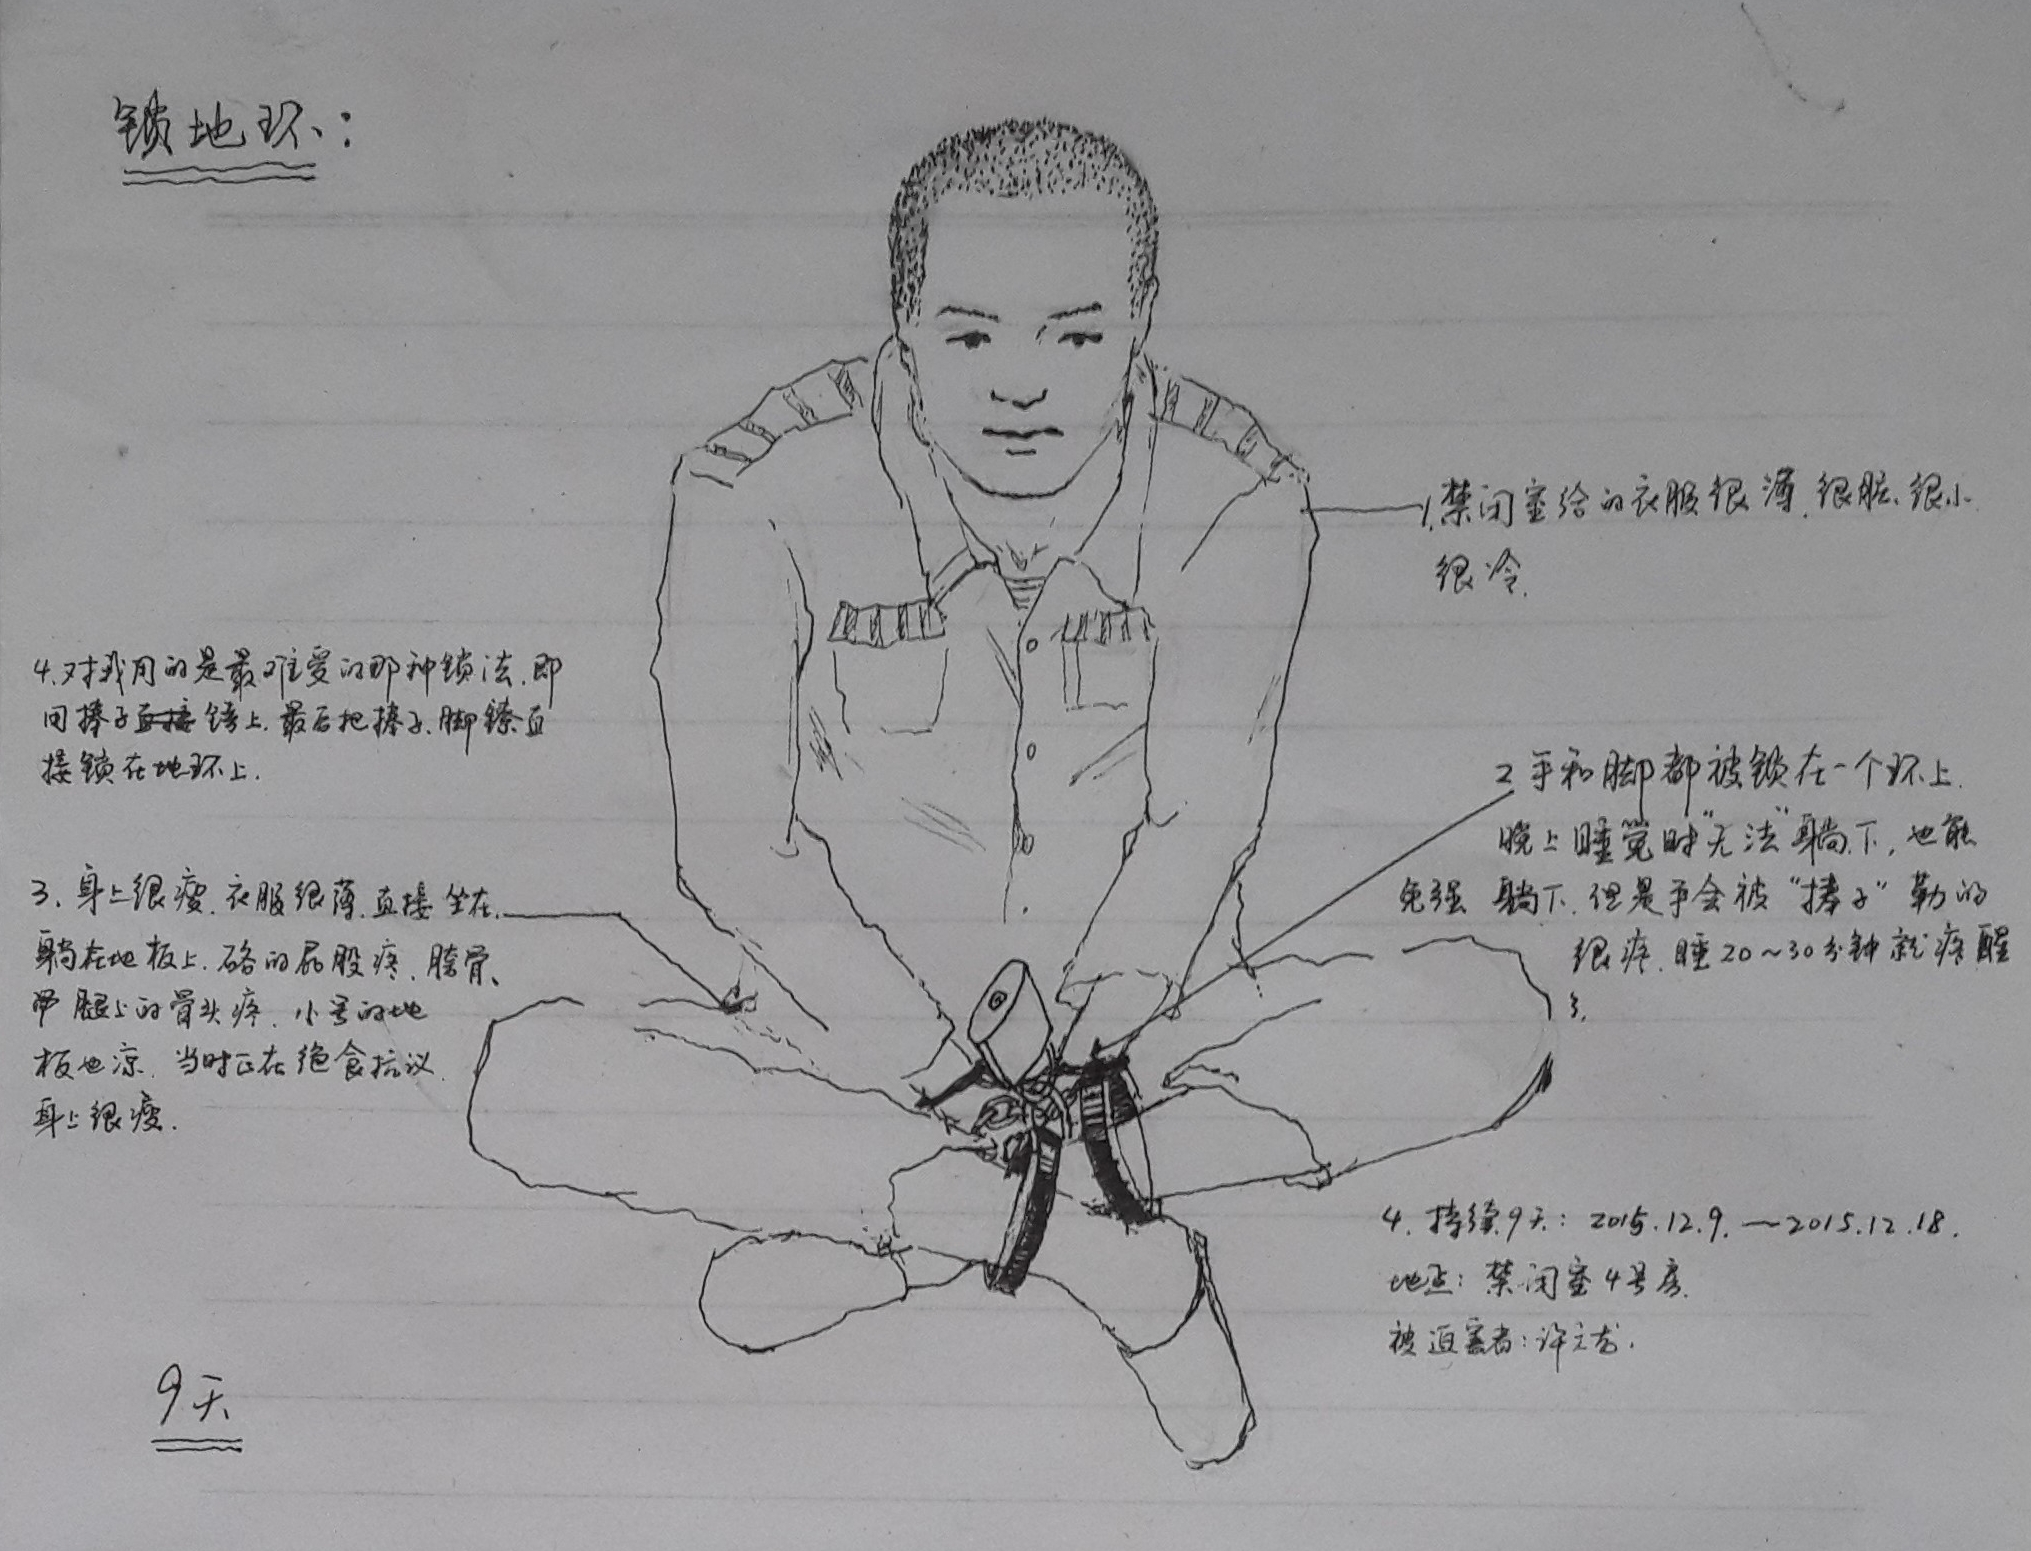 锁地环：
1.禁闭室给的衣服很薄.很脏、很小.
很冷.
4.对我用的是最难受的那种锁法.即
间捧子直接铐上.最后把捧子、脚镣直
接锁在地环上.
2手和脚都被锁在一个环上.
晚上睡觉时"无法"躺下，也能
免强躺下.但是手会被"捧子"勒的
很疼.睡20~30分钟就疼醒
了.
3、身上很瘦.衣服很薄.直接坐在、
躺在地板上.硌的屁股疼、胯骨、
带腿上的骨头疼.小号的地
板也凉.当时正在绝食抗议.
身上很瘦.
4.持续9天：2015.12.9.—2015.12.18.
地点：禁闭室4号房.
被迫害者：许立
9天